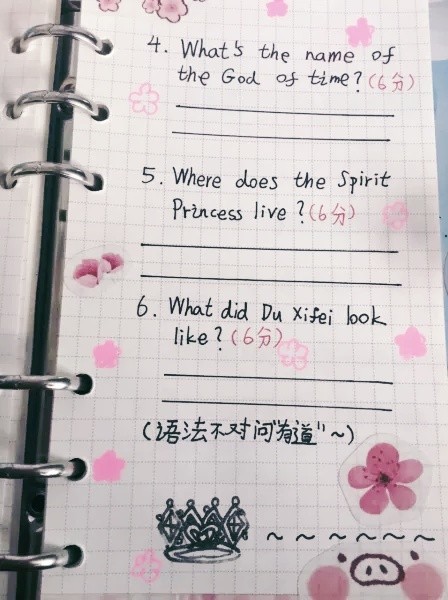 4. What's the name of
the God of time? (6分)
5. Where does the Spirit
Princess live? (6分)
6. What did Du Xifei look
like? (6分)
(语法不对问"有道"~)
~ ~ ~ ~ ~ ~